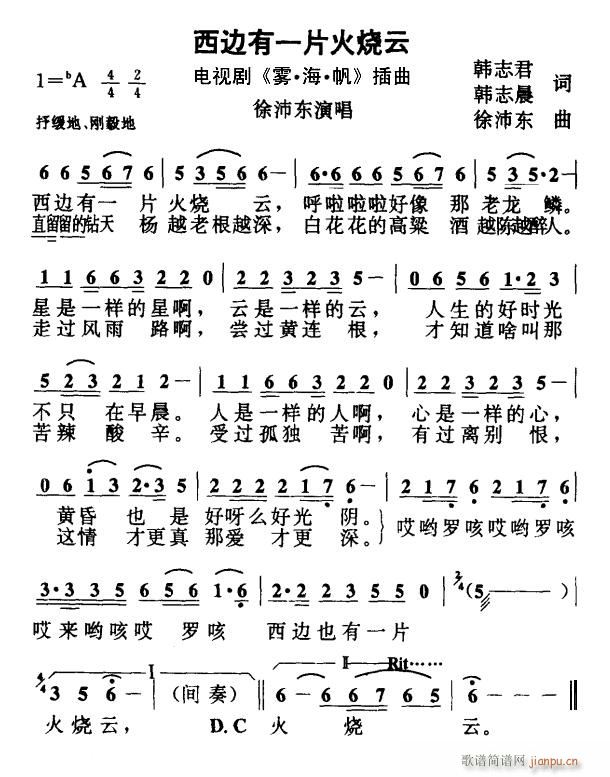 西边有一片火烧云
1=ᵇA 4/4 2/4
电视剧《雾·海·帆》插曲
徐沛东演唱
韩志君
韩志晨 词
徐沛东 曲
抒缓地、刚毅地
6 6 5 6 7 6 | 5 3 5 6 - | 6·6 6 6 5 6 7 6 | 5 3 5·2 - |
西边有一 片火烧 云， 呼啦啦啦好像 那 老龙 鳞。
直留留的钻天 杨 越老根越深， 白花花的高粱 酒 越陈越醉人。
1 1 6 6 3 2 2 0 | 2 2 3 2 3 5 - | 0 5 2 5 6 1·2 3 |
星是一样的星啊， 云是一样的云， 人生的好时光
走过风雨 路啊， 尝过黄连 根， 才知道啥叫那
5 2 3 2 1 2 - | 1 1 6 6 3 2 2 0 | 2 2 3 2 3 5 - |
不只 在早晨。 人是一样的人啊， 心是一样的心，
苦辣 酸 辛。 受过孤独 苦啊， 有过离别 恨，
黄昏 也 是 好呀么好光 阴。
哎哟罗咳哎哟罗咳
这情 才更真 那爱 才更 深。
3·3 3 5 6 5 6 1·6 | 2·2 2 3 5 0 | 2/4 (5 - |
哎来哟咳哎 罗咳 西边也有一片
I
II Rit……
4/4 3 5 6 - | (间奏) | 6 - 6 6 7 6 5 | 6 - - - ‖
火烧云， D.C 火 烧 云。
歌谱简谱网
jianpu.cn